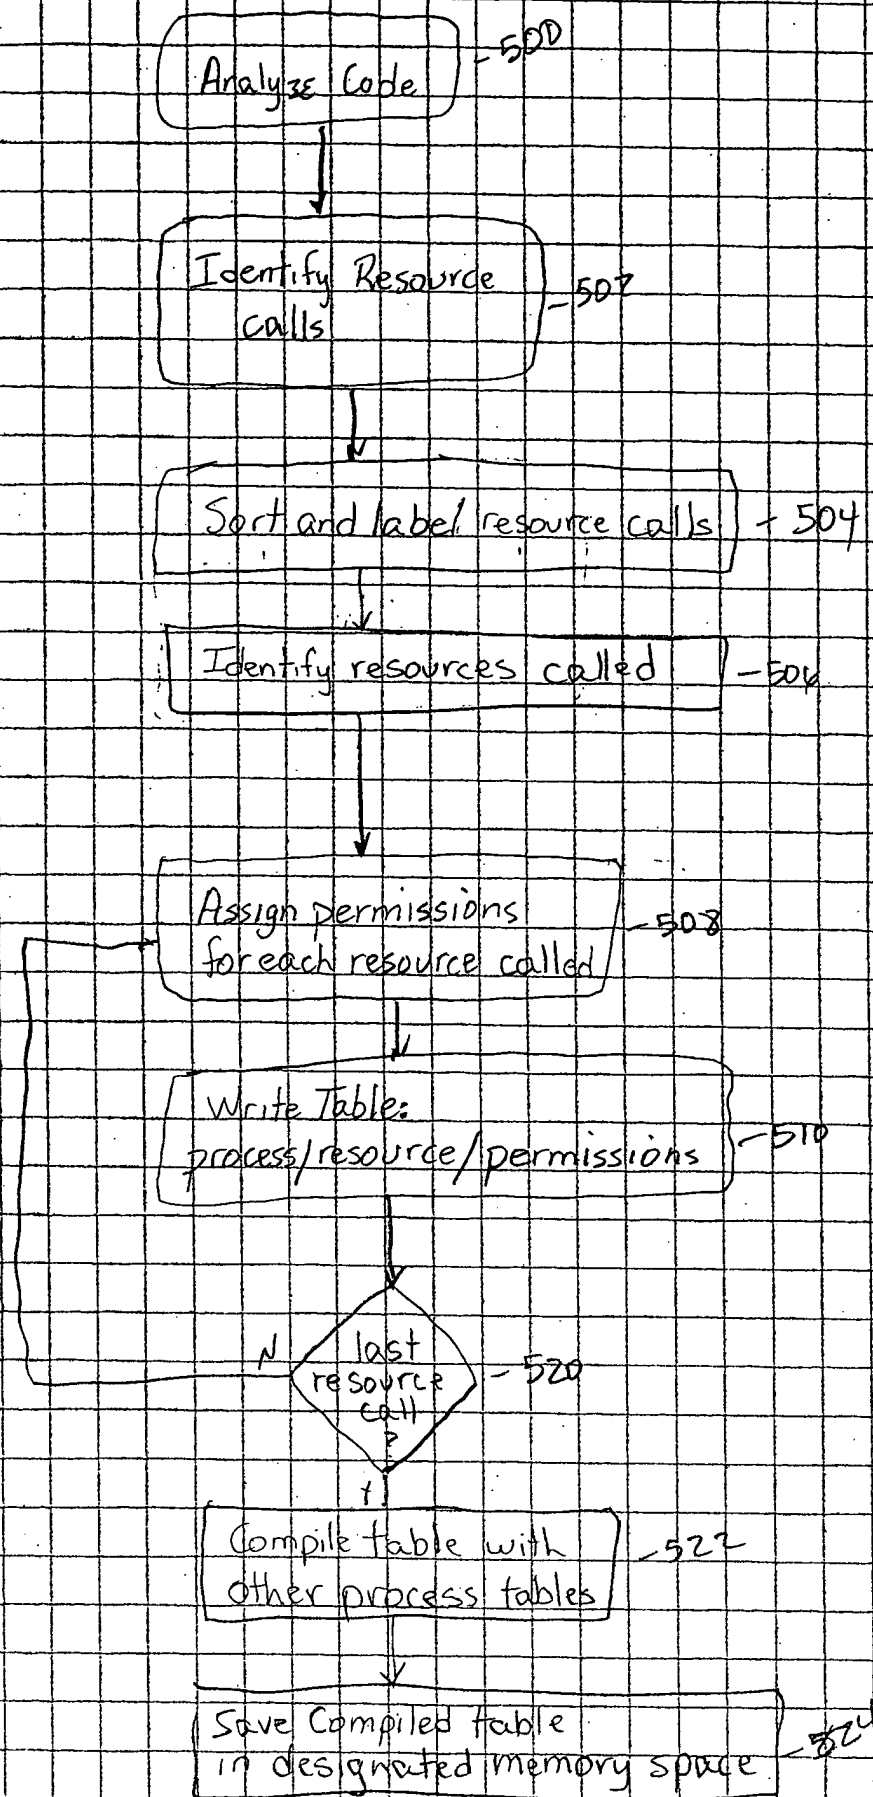 Analyze Code
-500
Identify Resource
calls
-502
Sort and label resource calls
-504
Identify resources called
-506
Assign permissions
for each resource called
-508
Write Table:
process/resource/permissions
-510
N
last
resource
call
?
-520
Y
Compile table with
other process tables
-522
Save Compiled table
in designated memory space
-524